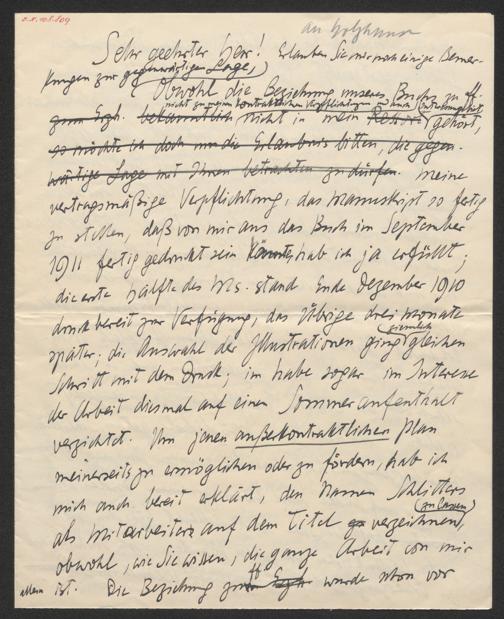 an Holzhausen
Sehr geehrter Herr! Erlauben Sie mir noch einige Bemer-
kungen zur gegenwärtigen Lage,
Obwohl die Beziehung unseres Buchs zu ff.
nicht zu meinen kontraktlichen Verpflichtungen und auch
zum Erzh. bekanntlich nicht in mein Ressort gehört,
so möchte ich doch um die Erlaubnis bitten, die gegen-
wärtige Lage mit Ihnen betrachten zu dürfen. Meine
vertragsmäßige Verpflichtung, das Manuskript so fertig
zu stellen, daß von mir aus das Buch im September
1911 fertig gedruckt sein könnte, hab ich ja erfüllt;
die erste Hälfte des Ms. stand Ende Dezember 1910
druckbereit zur Verfügung, das Übrige drei Monate
später; die Auswahl der Illustrationen ging ziemlich gleichen
Schritt mit dem Druck; im habe sogar im Interesse
der Arbeit diesmal auf einen Sommeraufenthalt
verzichtet. Um jenen außerkontraktlichen Plan
meinerseits zu ermöglichen oder zu fördern, hab ich
mich auch bereit erklärt, den Namen Schlitters
als Mitarbeiters auf dem Titel verzeichnen zu lassen,
obwohl, wie Sie wissen, die ganze Arbeit von mir
allein ist. Die Beziehung zu ff Erzh. wurde schon vor